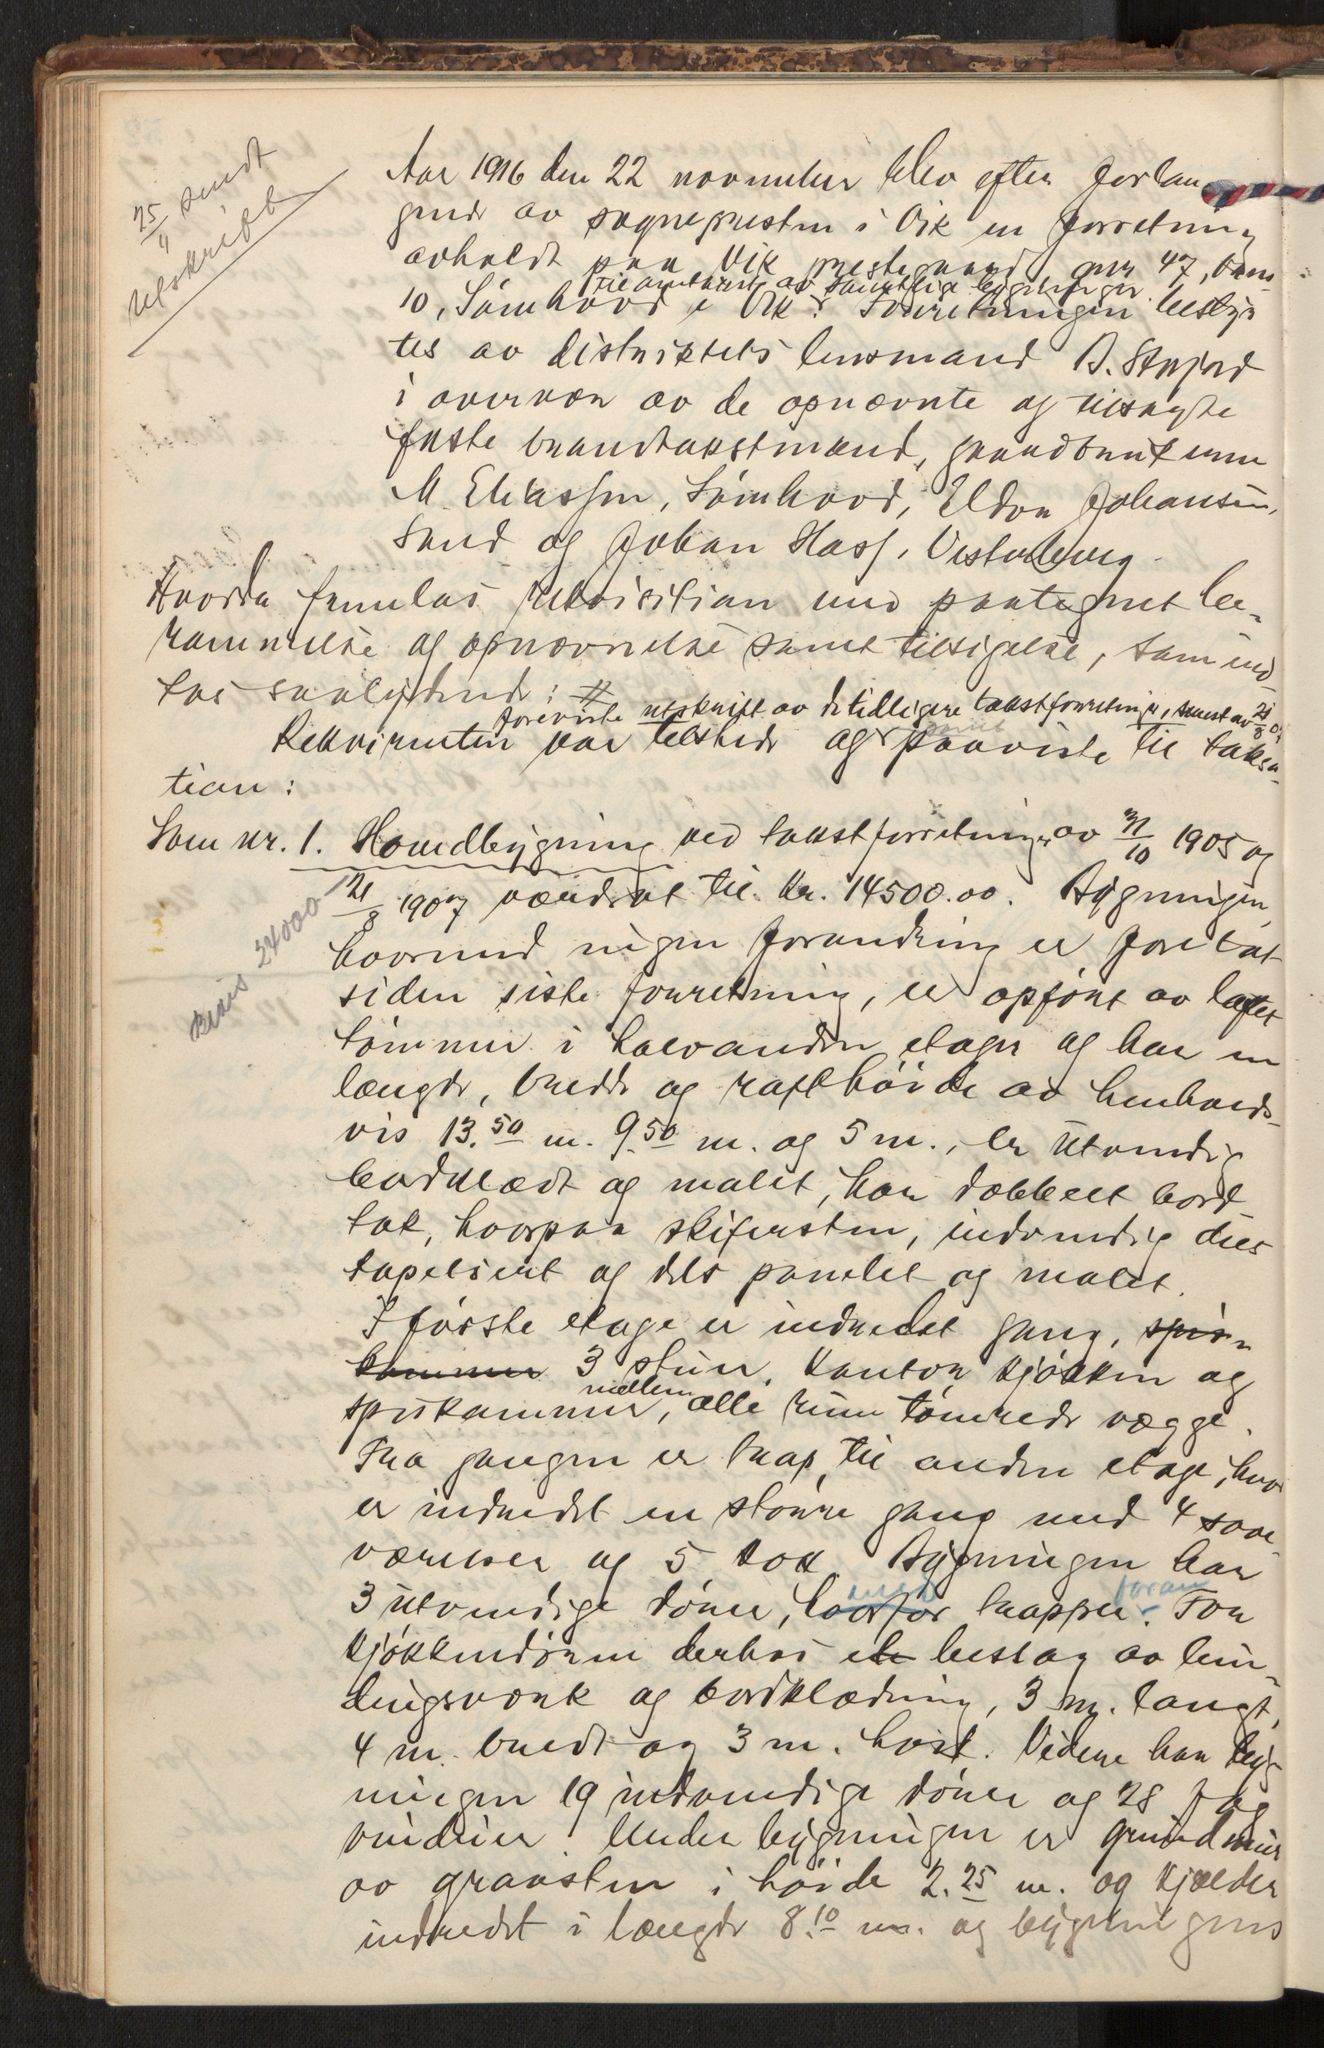 25/11 sendt
utskrift
Aar 1916 den 22 november blev efter forlan-
gende av sognepresten i Vik en forretning
avholdt paa Vik prestegaard, gnr 47, bnr
til omtakst av samtlige bygninger.
10, Sømhovd i Vik. Forretningen besty-
tes av distriktets lensmand B. Stnjord
i overvær av de opnævnte og tilsagte
faste brandtakstmænd, gaardbrukerne
M. Eliassen, Sømhovd, Eldor Johansen,
Sund og Johan Hass, Vesterberg.
Hvorda fremlas rekvisition med paategnet be-
rammelse og opnævnelse samt tilsigelse, som ind-
tas saalydende: #
foreviste utskrift av de tidligere takstforretninger, senest av 21/8 07
Rekvirenten var tilstede og paaviste til taksa-
tion:
Som nr. 1. Hovedbygning ved takstforretninger av 31/10 1905 og
21/8 1907 værdsat til kr. 14500.00. Bygningen,
hvormed ingen forandring er foretat
siden siste forretning, er opført av laftet
tømmer i halvanden etage og har en
længde, bredde og rafthøide av henholds-
vis 13.50 m. 9.50 m. og 5 m., er utvendig
bordklædt og malet, har dobbelt bord-
tak, hvorpaa skifersten, indvendig dels
tapetsert og dels panelet og malet.
I første etage er indredet gang, spis-
kammer 3 stuer, kontor, kjøkken og
mellem
spiskammer, alle rum tømrede vægge.
Fra gangen er trap til anden etage, hvor
er indredet en større gang med 4 sove-
værelser og 5 kott. Bygningen har
med foran
3 utvendige dører, hvorfor trapper. For
kjøkkendøren derhos et bislag av bin-
dingsverk og bordklædning, 3 m. langt,
4 m. bredt og 3 m. høit. Videre har byg-
ningen 19 indvendige dører og 28 fag
vinduer. Under bygningen er grundmur
av graasten i høide 2.25 m. og kjælder
indredet i længde 8.10 m. og bygningens
24000